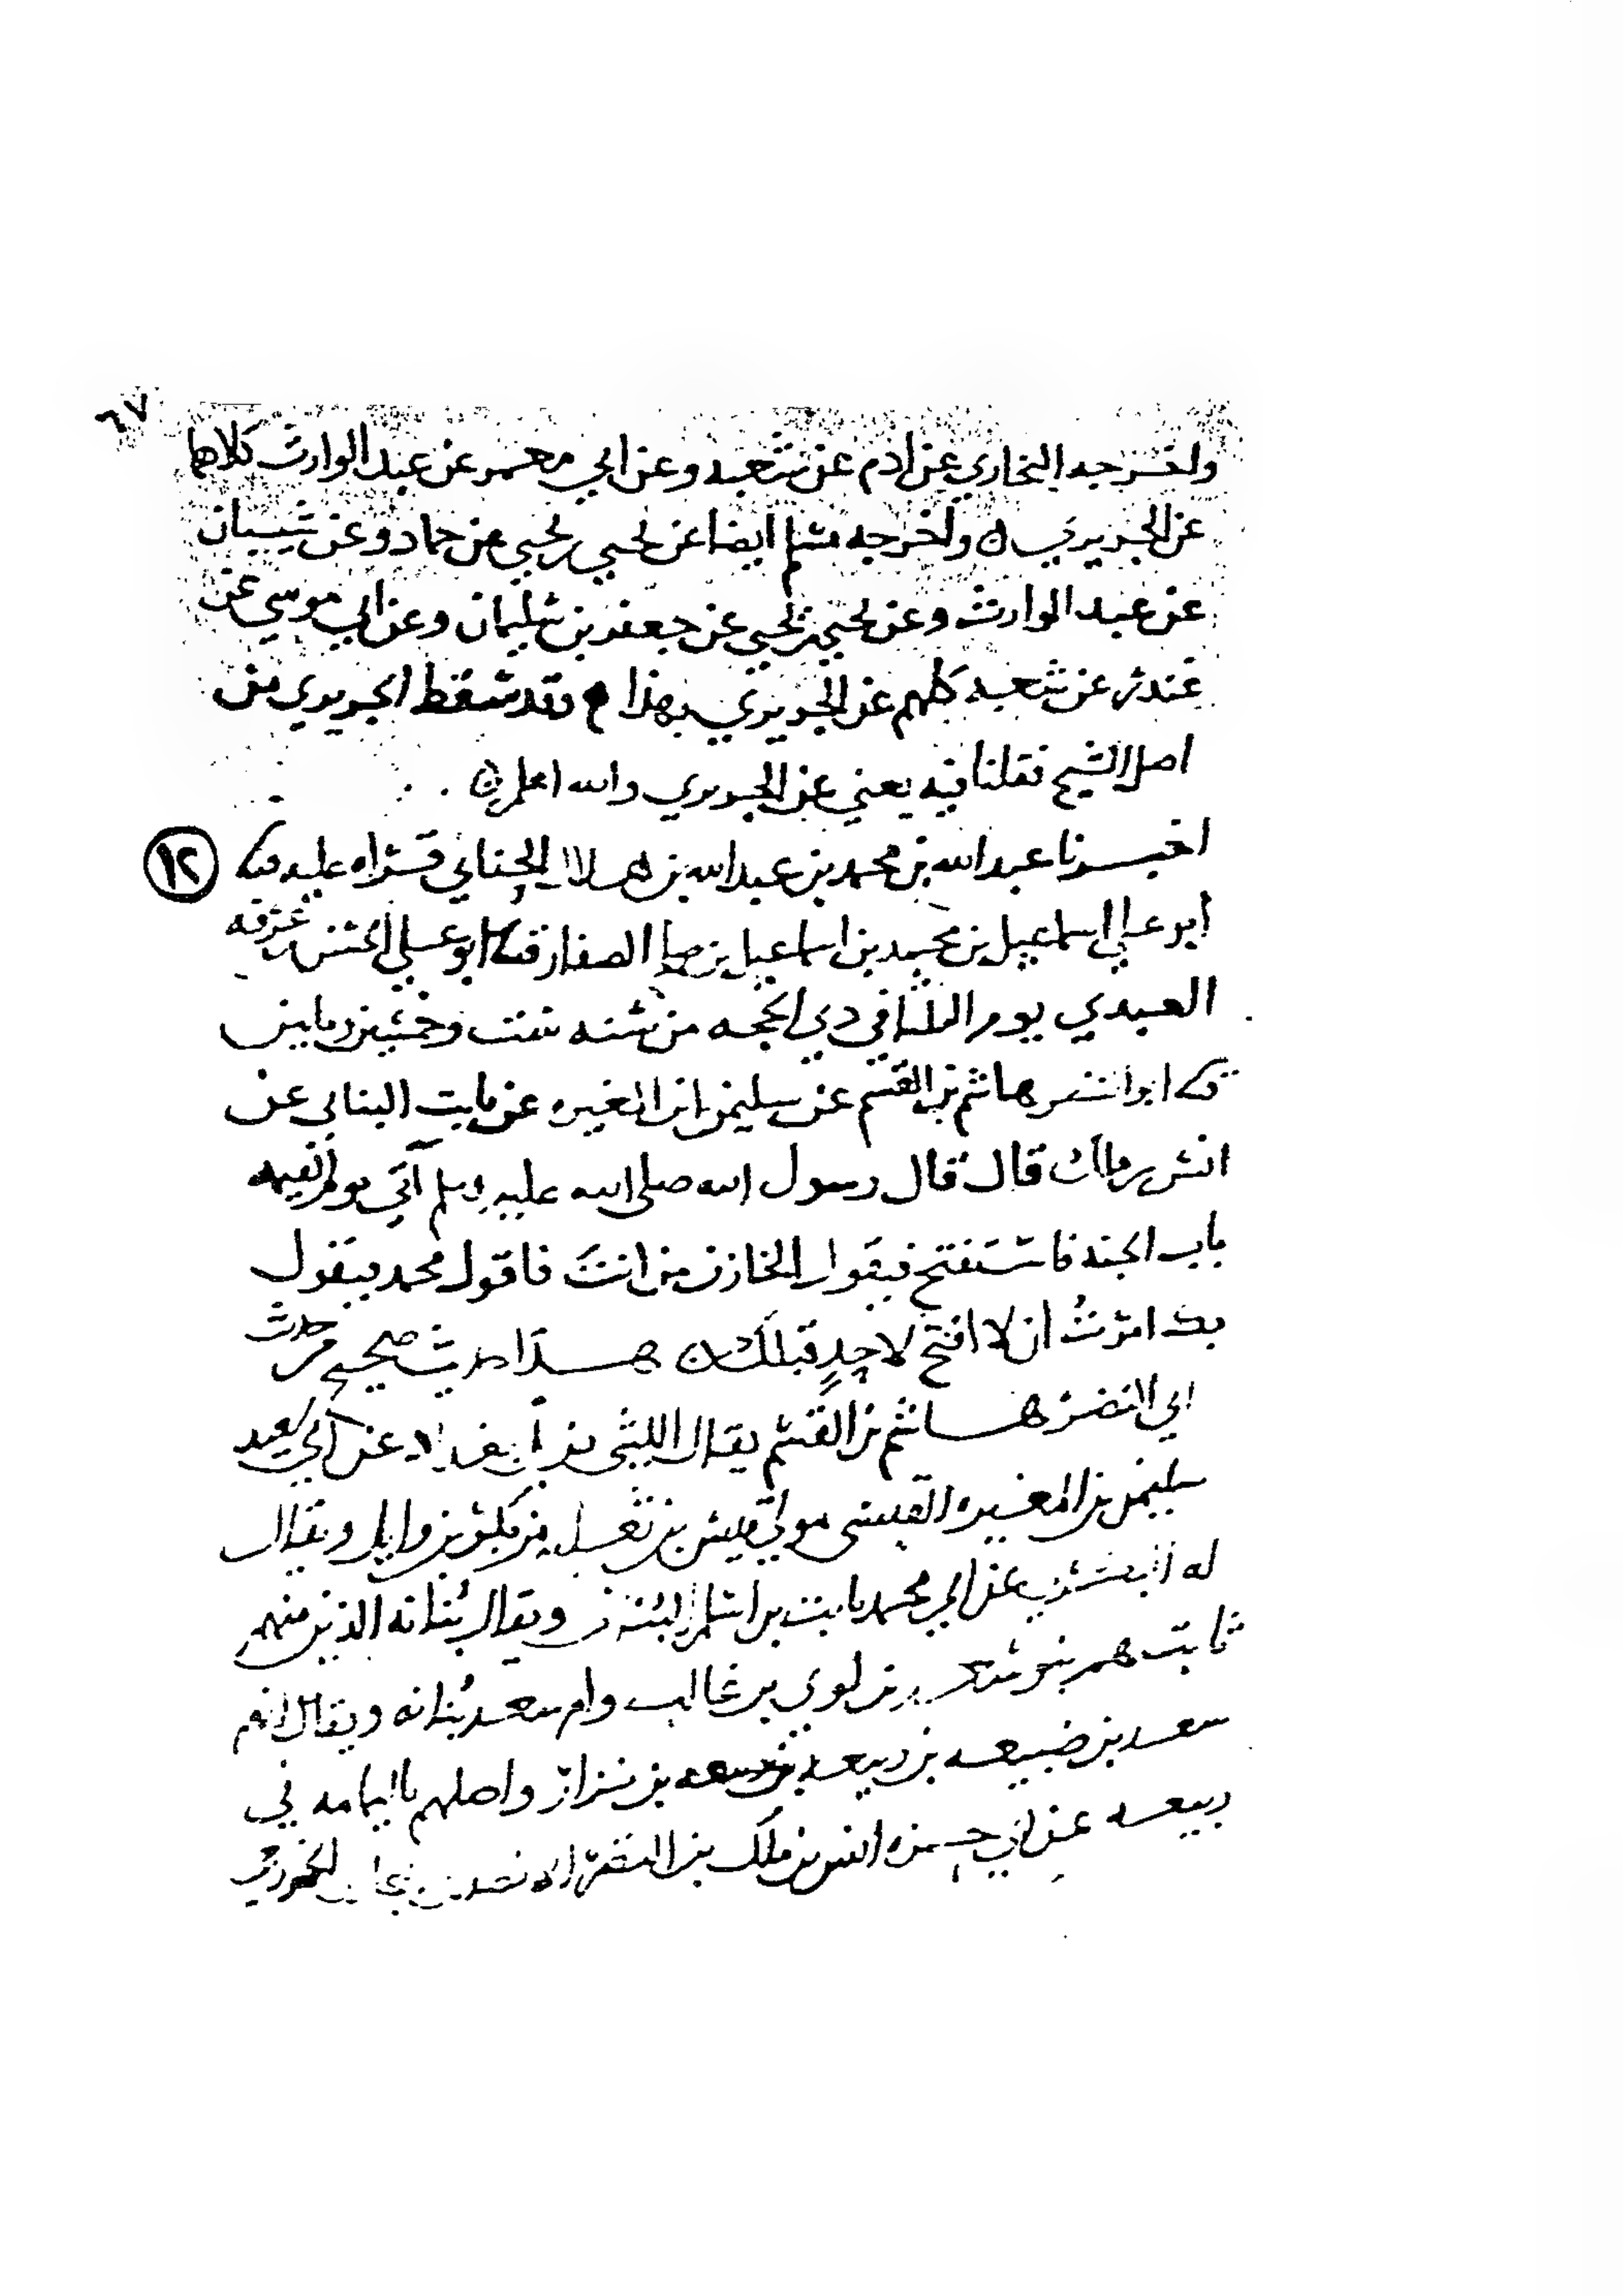 ٦٧
واخرجه البخاري عن ادم عن شعبه وعن ابي معمر عن عبد الوارث كلاهما
عن الجريري ن واخرجه مسلم ايضا عن يحيى بن يحيى عن حماد وعن شيبان
عن عبد الوارث وعن يحيى بن يحيى عن جعفر بن سليمان وعن ابي موسى عن
غندر عن شعبه كلهم عن الجريري بهذا وقد سقط الجريري من
اصل الشيخ فقلنا فيه يعني عن الجريري والله اعلم ن
اخبرنا عبد الله بن محمد بن عبد الله بن هلال الحنائي قراه عليه
١٢
ابو علي اسماعيل بن محمد بن اسماعيل بن صالح الصفار ابو علي الحسن بن عرفه
العبدي يوم الثلثا في ذي الحجه من سنه ست وخمسين وماتين
ابو النضر هاشم بن القسم عن سليمن ابن المغيره عن ثابت البناني عن
انس بن مالك قال قال رسول الله صلى الله عليه وسلم آتي يوم القيمه
باب الجنه فاستفتح فيقول الخازن من انت فاقول محمد فيقول
بك امرت ان لا افتح لاحد قبلك ن هذا حديث صحيح من حديث
ابي النضر هاشم بن القسم يقال الليثي من عن ابي سعيد
سليمن بن المغيره القيسي مولى قيس بن ثعلبه بن بكر بن وايل ويقال
له عن ابي محمد ثابت بن اسلم ويقال بنانه الذين منهم
ثابت هم بنو سعد بن لوي بن غالب وام سعد بنانه ويقال انهم
سعد بن ضبيعه بن ربيعه بن نزار واصلهم باليمامه في
ربيعه عن ابي حمزه انس بن ملك بن النضر الانصاري الخزرجي